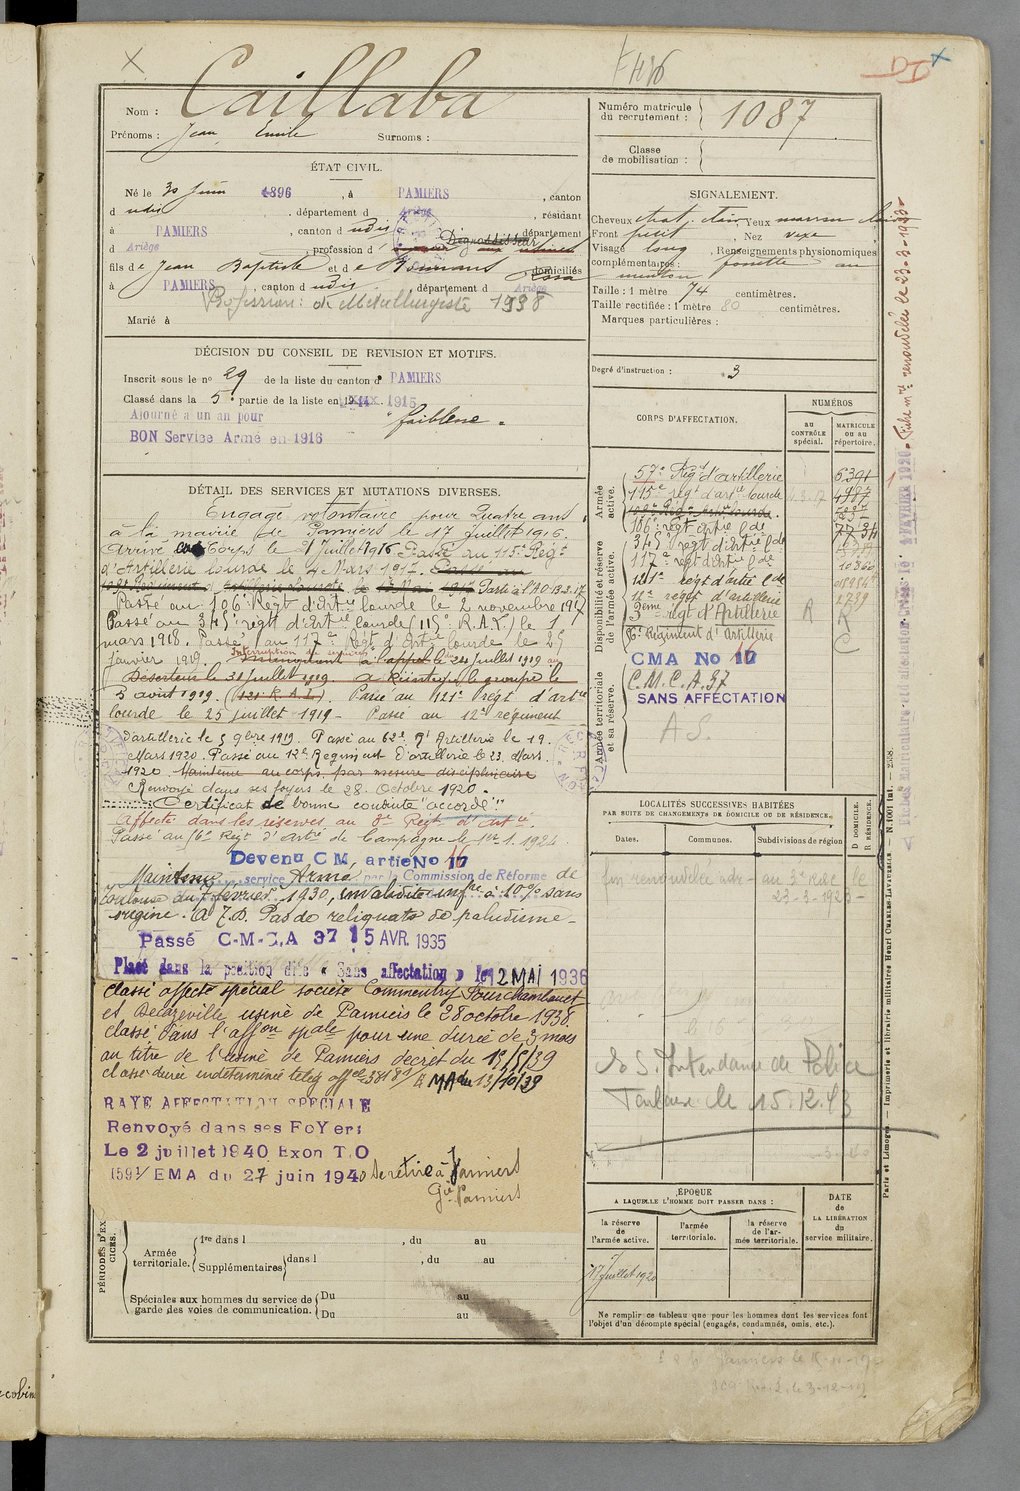 Nom : Caillaba
Prénoms : Jean Emile Surnoms :
ÉTAT CIVIL.
Né le 30 Juin 1896, à PAMIERS, canton
d udis, département d Ariège, résidant
à PAMIERS, canton d udis, département
d Ariège, profession d
fils de Jean Baptiste et de Rosa domiciliés
à PAMIERS, canton d udis, département d Ariège
Profession : de Métallurgiste 1938
Marié à
DÉCISION DU CONSEIL DE REVISION ET MOTIFS.
Inscrit sous le n° 29 de la liste du canton d PAMIERS
Classé dans la 5e partie de la liste en 1915
Ajourné a un an pour faiblesse
BON Service Armé en 1916
DÉTAIL DES SERVICES ET MUTATIONS DIVERSES.
Engagé volontaire pour Quatre ans
à la mairie de Pamiers le 17 Juillet 1916.
Arrivé au Corps le Juillet 1916 Passé au 115e Régt
d'Artillerie lourde le 4 Mars 1917. Passé au
Passé au 106e Régt d'Artie lourde le 2 novembre 1917
Passé au 345e régt d'Artie lourde (115e R.A.L) le 1
mars 1918. Passé au 117e Régt d'Artie lourde le 25
janvier 1919. Interruption de services
manquant à l'appel le 24 Juillet 1919 au
Déserteur le 31 Juillet 1919. a Réintégré le groupe le
5 août 1919. (121e R.A.L). Passé au 121e régt d'artie
lourde le 25 juillet 1919 - Passé au 12e régiment
d'artillerie le 5 9bre 1919. Passé au 62e Rt Artillerie le 19
Mars 1920. Passé au 12e Régiment d'artillerie le 23 Mars
1920. Maintenu au corps par mesure disciplinaire
Renvoyé dans ses foyers le 28 Octobre 1920.
Certificat de bonne conduite "accordé"
Affecté dans les réserves au 3e Régt d'Artie
Passé au 16e Régt d'Artie de Campagne le 1er 1. 1924
Devenu C M, artie No 16
Maintenu service Armé par la Commission de Réforme de
Toulouse du 7 février 1930, invalidité infre à 10% sans
origine. A.T.D. Pas de reliquats de paludisme
Passé C-M-C,A 37 15 AVR. 1935
Placé dans la position dite « Sans affectation » le 12 MAI 1936
classé affecté spécial société Commentry Fourchambault
et Decazeville usine de Pamiers le 28 octobre 1938.
classé dans l'affon spale pour une durée de 3 mois
au titre de l'usine de Pamiers décret du 13/5/39
classé durée indéterminée télég offel 38181 E MA du 13/10/39
RAYE AFFECTATION SPECIALE
Renvoyé dans ses FoYers
Le 2 juillet 1940 Exon T.O
1591/ EMA du 27 juin 1940 se retire à Pamiers
Gie Pamiers
PÉRIODES D'EXERCICES.
Armée territoriale.
1re dans l , du au
Supplémentaires dans l , du au
Spéciales aux hommes du service de garde des voies de communication.
Du au
Du au
Numéro matricule du recrutement : 1087
Classe de mobilisation :
SIGNALEMENT.
Cheveux chat. clair, Yeux marron clair
Front petit, Nez vexe
Visage long, Renseignements physionomiques
complémentaires : fossette au
menton
Taille : 1 mètre 74 centimètres.
Taille rectifiée : 1 mètre 80 centimètres.
Marques particulières :
Degré d'instruction : 3
CORPS D'AFFECTATION.
NUMÉROS
AU CONTRÔLE spécial.
MATRICULE OU AU répertoire.
Armée active.
Disponibilité et réserve de l'armée active.
Armée territoriale et sa réserve.
57e Régt d'Artillerie
115e régt d'artie lourde
106e régt artie lde
345e régt d'Artie lde
117e régt d'Artie lde
10360
121e régt d'artie lde
12e régt d'artillerie
3ème régt d'Artillerie R R
16e Régiment d'Artillerie C
CMA No 16
C.M.C.A 37
SANS AFFECTATION
A S.
LOCALITÉS SUCCESSIVES HABITÉES
PAR SUITE DE CHANGEMENTS DE DOMICILE OU DE RÉSIDENCE.
Dates. Communes. Subdivisions de région
D. DOMICILE. R. RÉSIDENCE.
23-3-1923
S. Intendance de Police
Toulouse le 15.12.43
ÉPOQUE
A LAQUELLE L'HOMME DOIT PASSER DANS :
la réserve de l'armée active.
l'armée territoriale.
la réserve de l'armée territoriale.
DATE de LA LIBÉRATION du service militaire.
17 Juillet 1920
Ne remplir ce tableau que pour les hommes dont les services font
l'objet d'un décompte spécial (engagés, condamnés, omis, etc.).
Fiche mle renouvelée le 23-3-1923
Paris et Limoges. — Imprimerie et librairie militaires Henri CHARLES-LAVAUZELLE — N. 1001 int. — 2558.